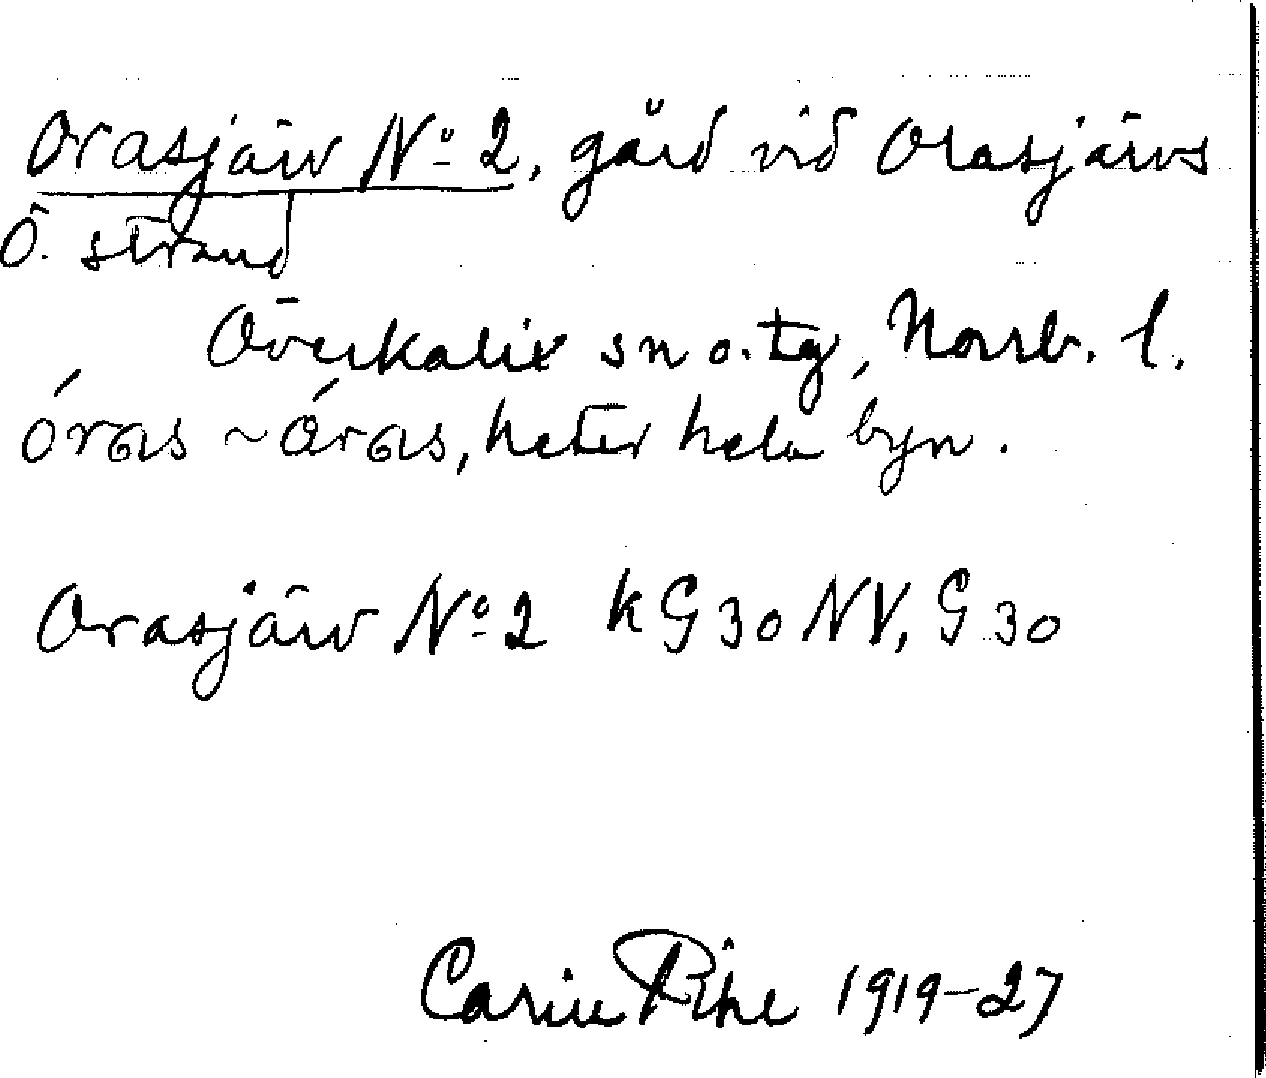 Orasjärv Nº 2, gård vid Orasjärvs
Ö. strand
Överkalix sn o. tg, Norrb. l.
óras ~ óras, heter hela byn.
Orasjärv Nº 2 k G 30 NV, G 30
Carin Pihl 1919-27